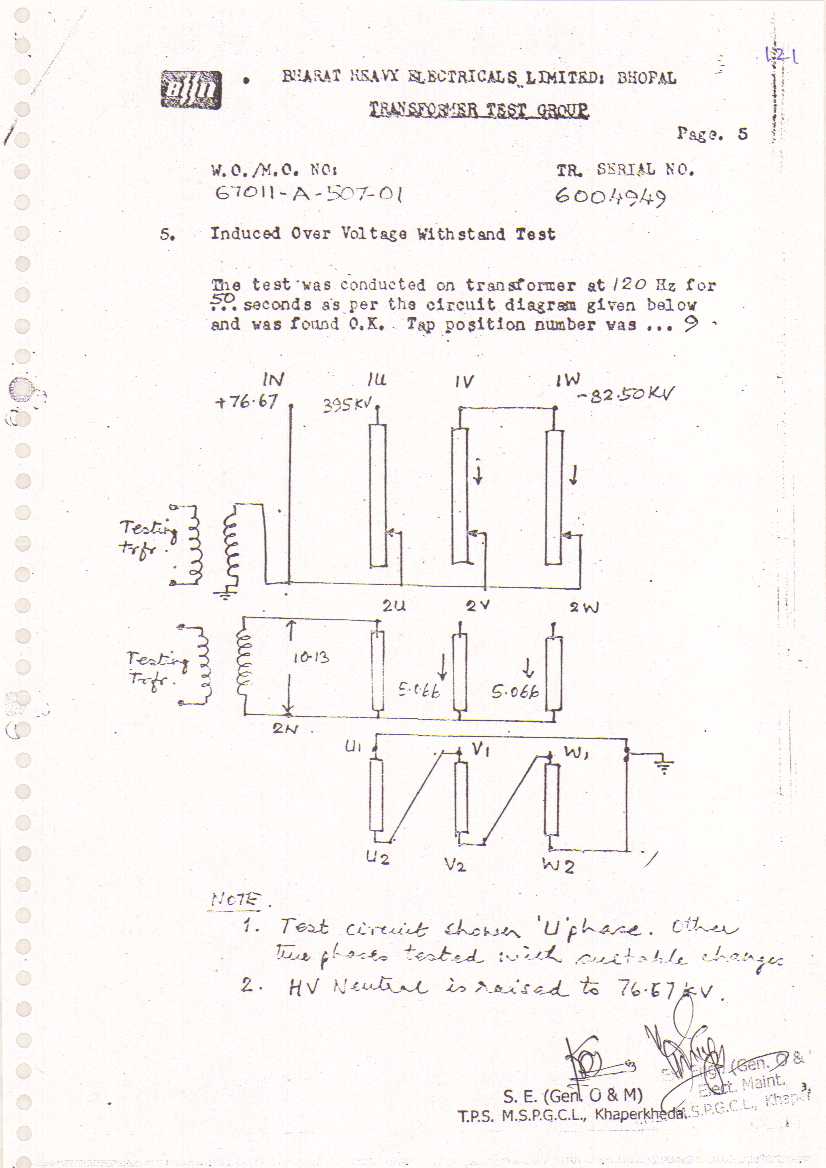 121
BHEL
BHARAT HEAVY ELECTRICALS LIMITED: BHOPAL
TRANSFORMER TEST GROUP
Page. 5
W.O./M.O. NO: TR. SERIAL NO.
67011-A-507-01 6004949
5. Induced Over Voltage Withstand Test
The test was conducted on transformer at 120 Hz for
50 seconds as per the circuit diagram given below
and was found O.K. Tap position number was ... 9
1N 1U 1V 1W
+76.67 395KV -82.50KV
Testing
trfr.
2U 2V 2W
Testing
Trfr.
10.13
5.066 5.066
2N
U1 V1 W1
U2 V2 W2
NOTE.
1. Test circuit shows 'U' phase. Other
two phases tested with suitable changes
2. HV Neutral is raised to 76.67 KV.
(Gen. O &
Elect. Maint.
S. E. (Gen. O & M)
T.P.S. M.S.P.G.C.L., Khaperkheda.
M.S.P.G.C.L.,